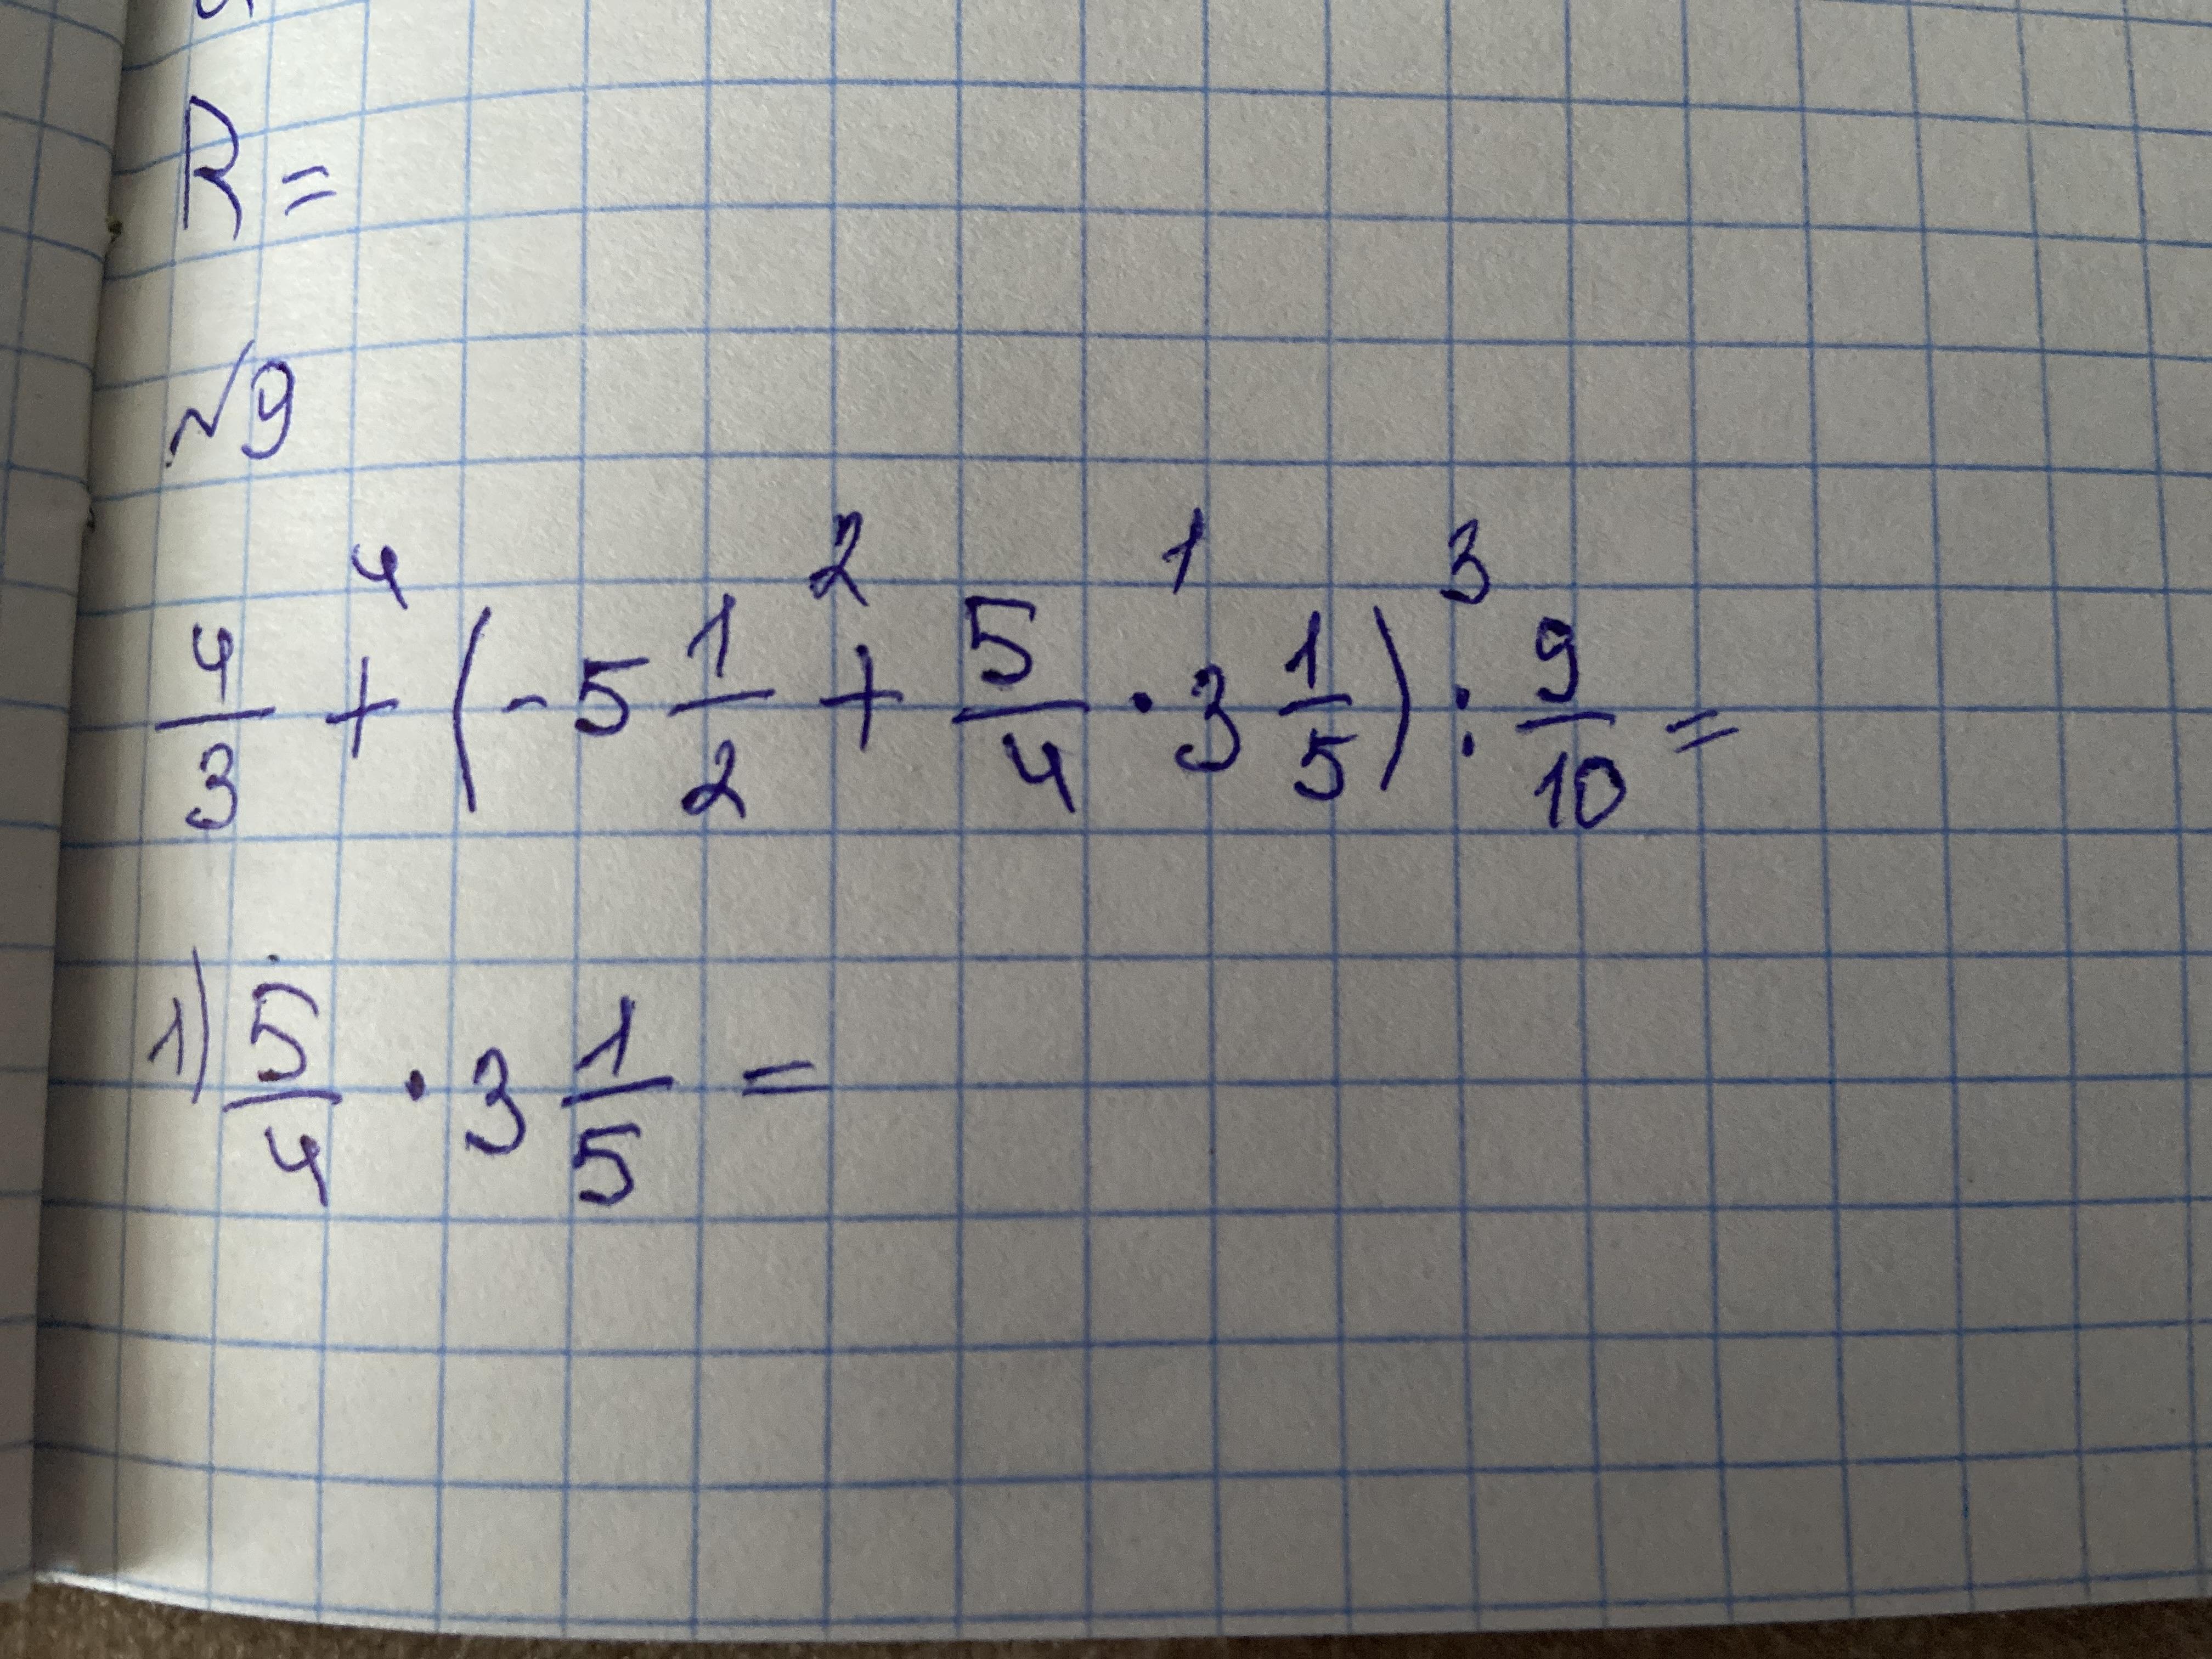 R =
№9
4 2 1 3
4/3 + (-5 1/2 + 5/4 · 3 1/5) : 9/10 =
1) 5/4 · 3 1/5 =